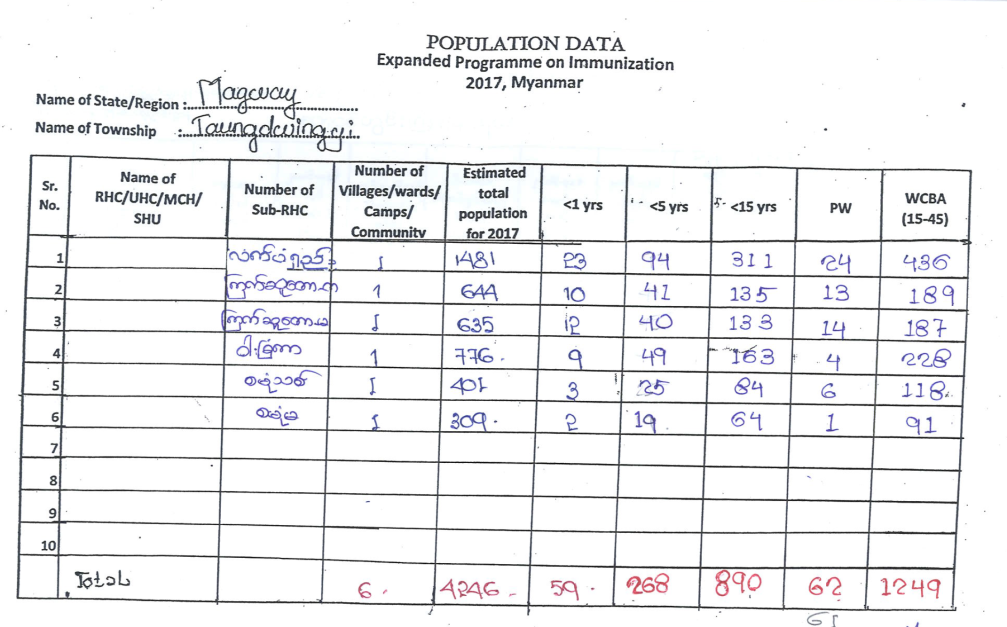 POPULATION DATA
Expanded Programme on Immunization
2017, Myanmar
Name of State/Region : Magway
Name of Township : Taungdwingyi
Sr. No. Name of RHC/UHC/MCH/SHU Number of Sub-RHC Number of Villages/wards/Camps/Community Estimated total population for 2017 <1 yrs <5 yrs 5- <15 yrs PW WCBA (15-45)
1 1 1481 23 94 311 24 436
2 1 644 10 41 135 13 189
3 1 635 12 40 133 14 187
4 1 776 9 49 163 4 228
5 1 401 3 25 84 6 118
6 1 309 2 19 64 1 91
7
8
9
10
Total 6 4246 59 268 890 62 1249
61